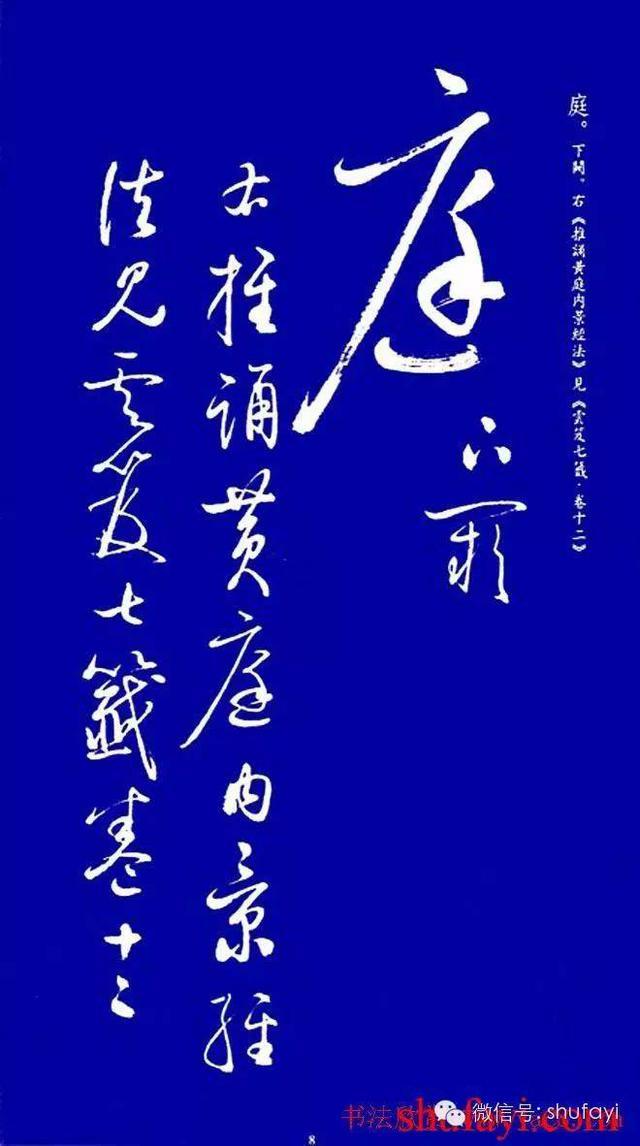 庭。下闕。右《推誦黃庭内景經法》見《雲笈七籤·卷十二》
庭下闕
右推誦黄庭内景經
法見雲笈七籤卷十二
8
书法
shufayi.com
微信号: shufayi